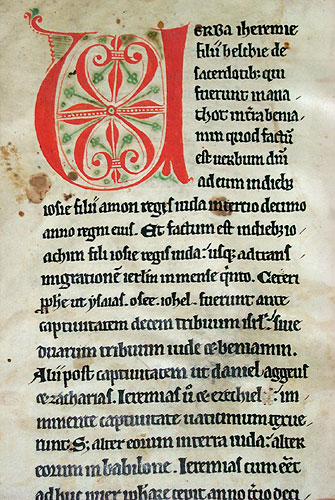 Verba iheremie
filii helchie de
sacerdotib; qui
fuerunt in ana
thot in t̄ra benia
min quod factū
est uerbum dn̄i
ad eum in dieb;
iosie filii amon regis iuda in tertio decimo
anno regni eius. Et factum est in dieb; io
achim filii iosie regis iuda usq; ad trans
migrationē ierl̄m in mense q̇nto. Ceteri
ꝓphe ut ysaias. osee. iohel. fuerunt ante
captiuitatem decem tribuum isrl̄. siue
duarum tribuum iude & beniamin.
Alii post captiuitatem ut daniel aggeus
& zacharias. Ieremias ū & ezechiel. im
minente captiuitate uaticinium tenue
runt S; alter eorum in terra iuda. alter
eorum in babilone. Ieremias cum eēt
ad huc puer ꝓphare cepit anno q̇nto deci